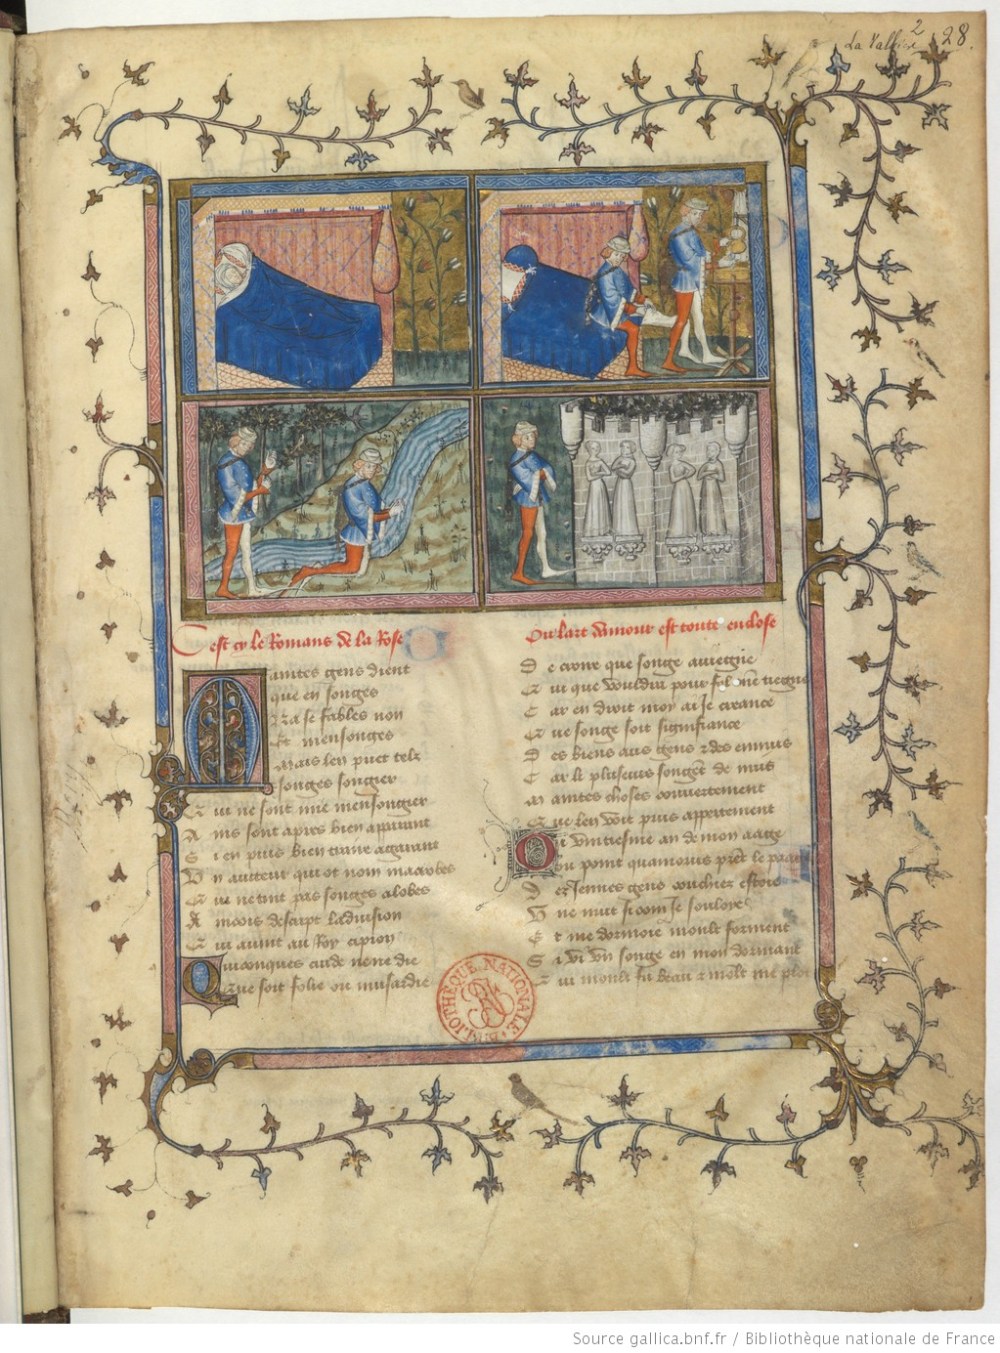 La Valliere 2 28.
Cest cy le Romans de la Rose
Maintes gens dient
que en songes
Na se fables non
Et mensonges
Mais len puet telz
songes songier
Qui ne sont mie mensongier
Ains sont apres bien apparant
Si en puis bien traire a garant
Un aucteur qui ot nom macrobes
Qui ne tint pas songes a lobes
Aincois descript la vision
Qui avint au Roy cipion
Quiconques cuide ne ne die
Que soit folie ou musardie
Ou lart damour est toute enclose
De croire que songe aviegne
Qui que vouldra pour fol me tiegne
Car en droit moy ai Je creance
Que songe soit signifiance
Des biens aus gens et des ennuis
Car li pluseurs songent de nuis
Maintes choses couvertement
Que len voit puis appertement
Ou vintiesme an de mon aage
Ou point quamours prent le
Des Jennes gens couchiez estoie
Une nuit si com Je souloie
Et me dormoie moult forment
Si vi un songe en mon dormant
Qui moult fu beau et molt me
BIBLIOTHÈQUE NATIONALE
Source gallica.bnf.fr / Bibliothèque nationale de France